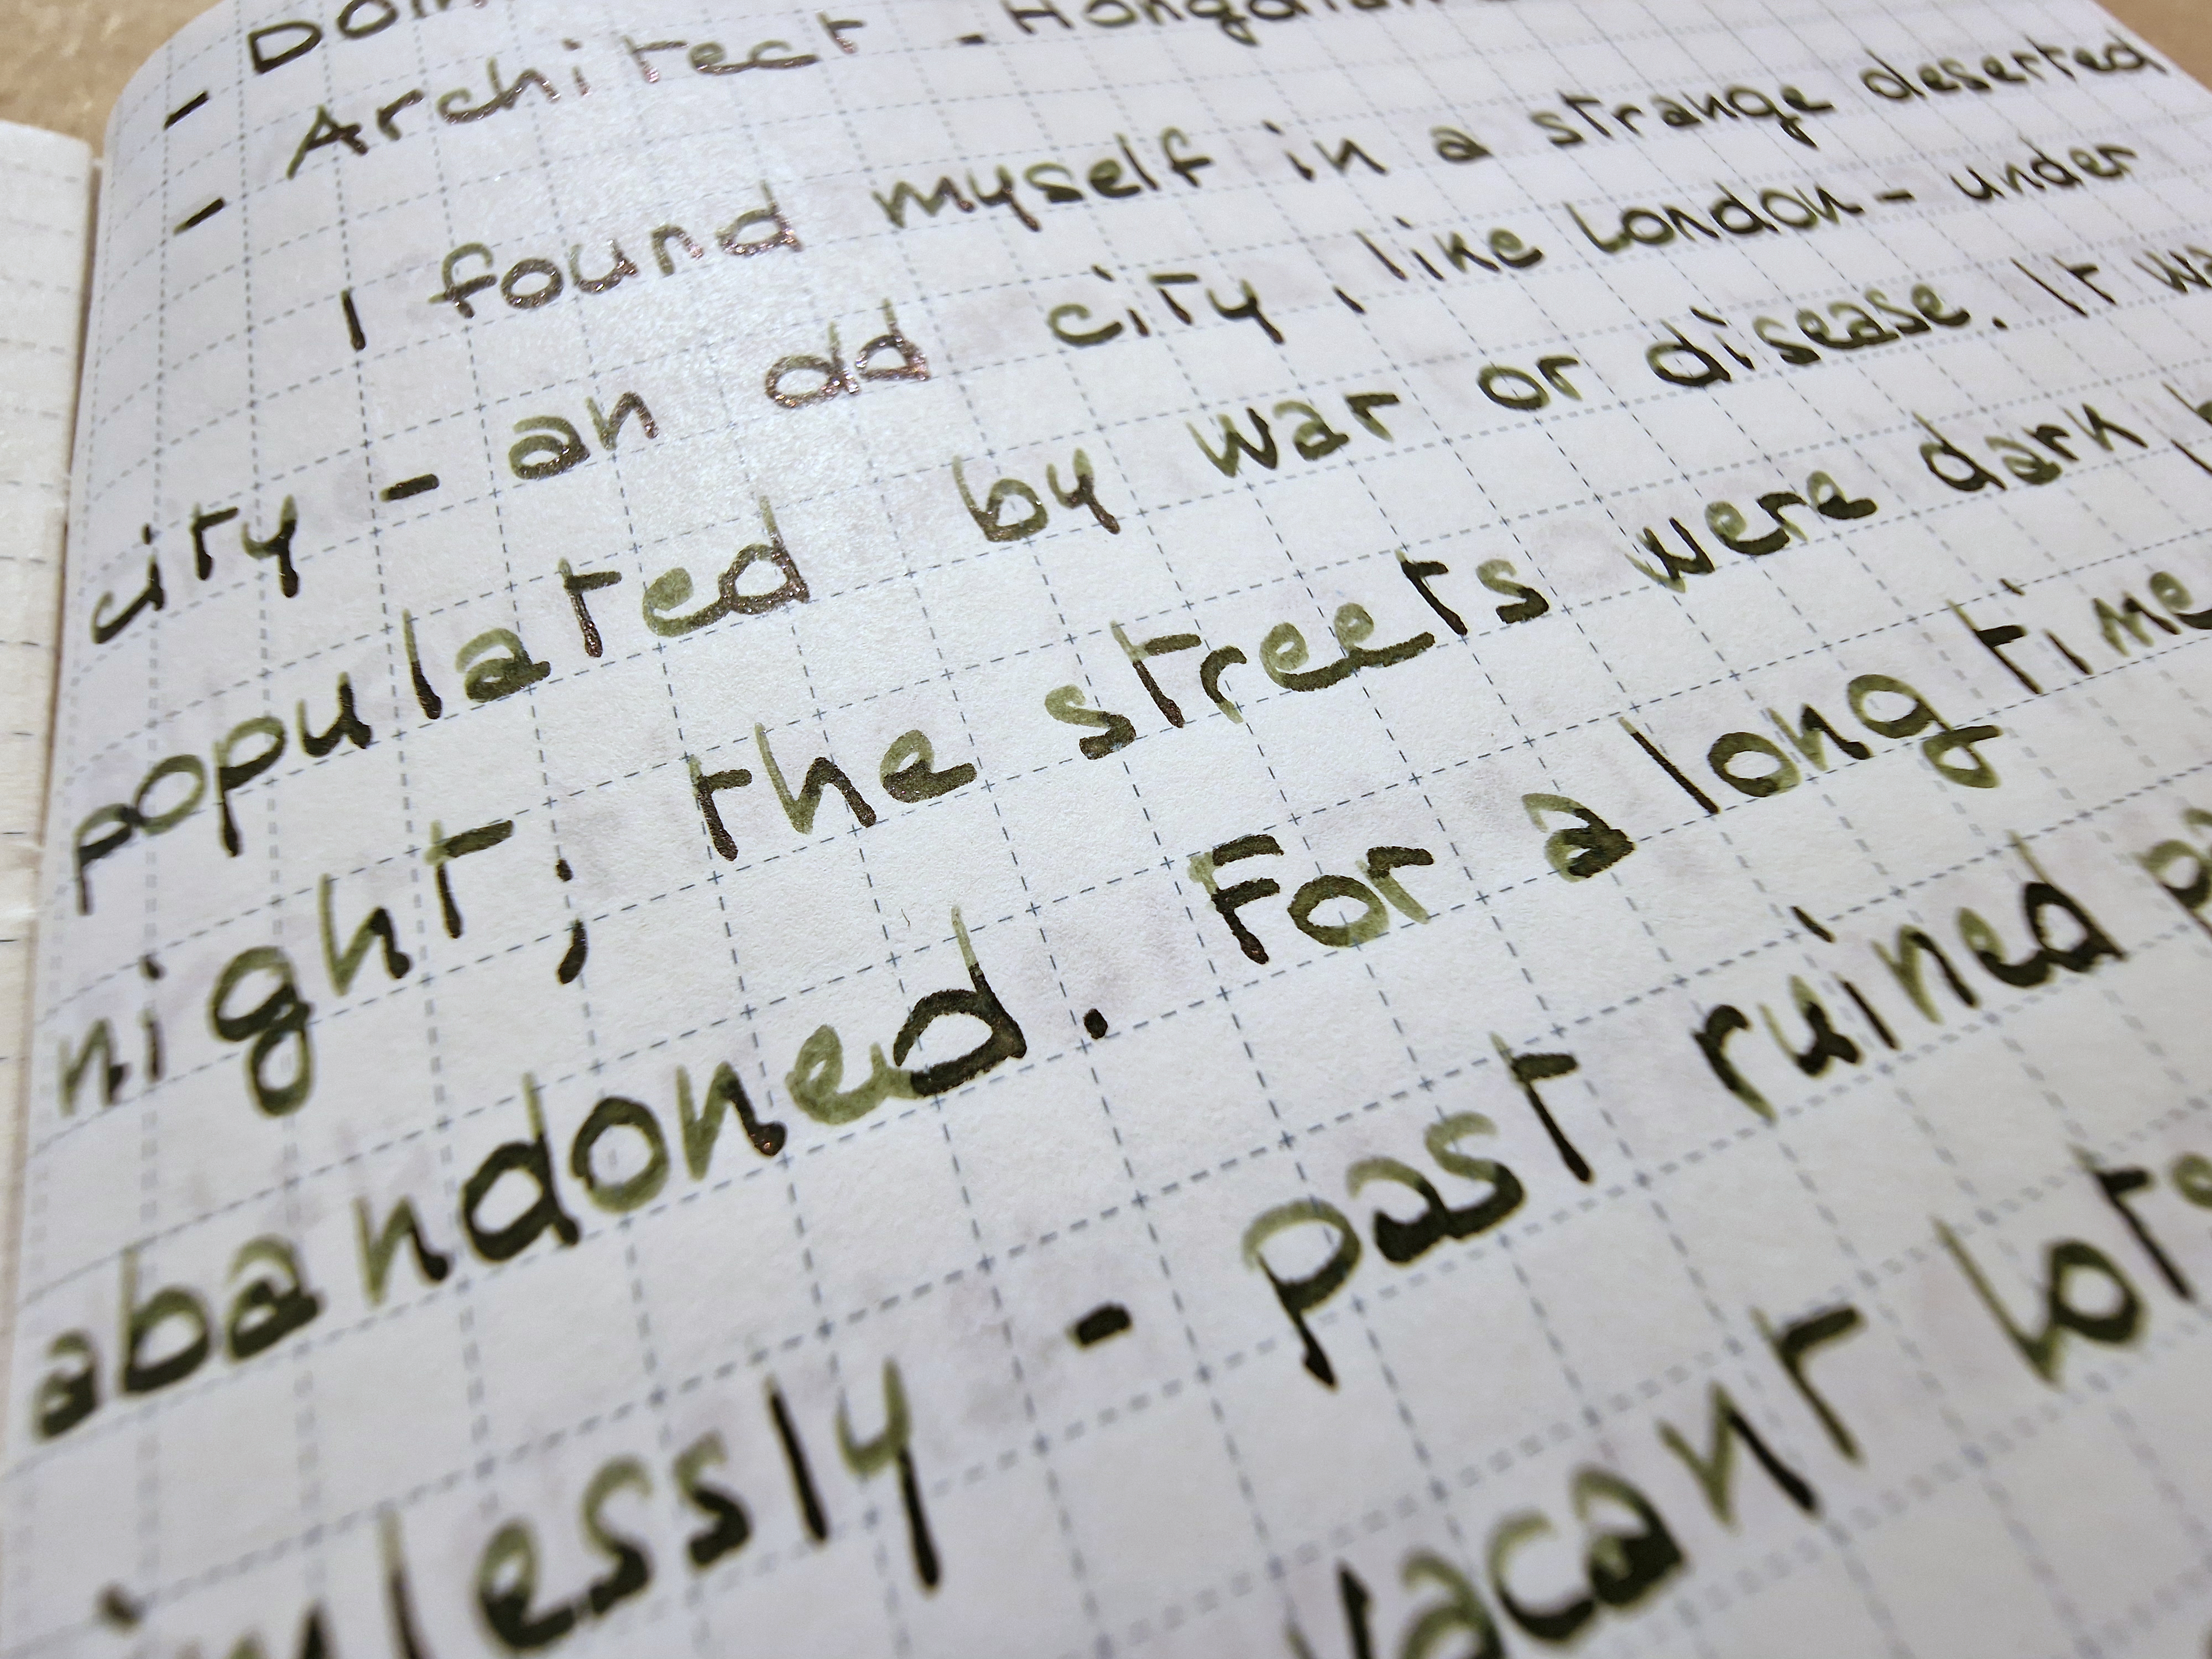 -
- Architect -
I found myself in a strange deserted
city - an old city, like London - under
populated by war or disease. It
night; the streets were dark
abandoned. For a long time
- past ruined
vacant lots